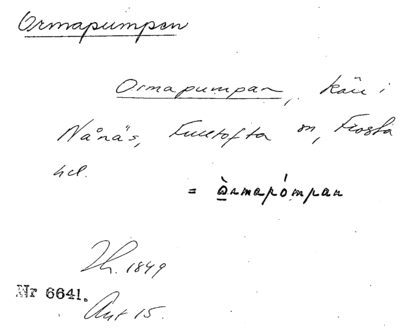 Ormapumpen
Ormapumpan, kärr i
Nånäs, Fulltofta sn, Frosta
hd.
= òrmapómpan
Th. 1849
Nr 6641.
Ant 15.